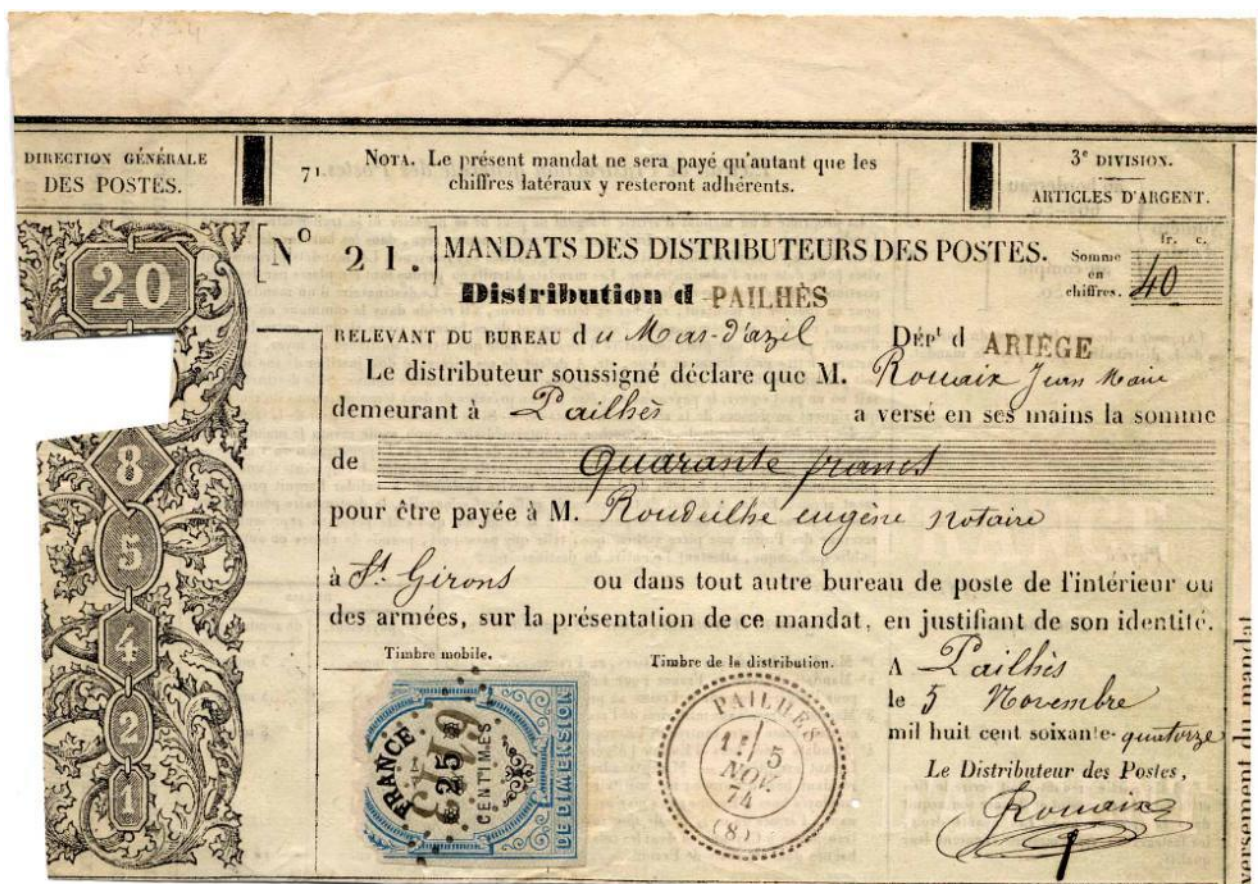 DIRECTION GÉNÉRALE
DES POSTES.
71.
NOTA. Le présent mandat ne sera payé qu'autant que les
chiffres latéraux y resteront adhérents.
3e DIVISION.
ARTICLES D'ARGENT.
20
8
5
4
2
1
[No 21.] MANDATS DES DISTRIBUTEURS DES POSTES.
Somme
en
chiffres.
fr. c.
40
Distribution d PAILHÈS
RELEVANT DU BUREAU du Mas-d'azil Dépt d ARIÈGE
Le distributeur soussigné déclare que M. Rouaix Jean Marie
demeurant à Pailhès a versé en ses mains la somme
de Quarante francs
pour être payée à M. Roudeilhe eugène Notaire
à St. Girons ou dans tout autre bureau de poste de l'intérieur ou
des armées, sur la présentation de ce mandat, en justifiant de son identité.
Timbre mobile.
FRANCE
25
CENTIMES
DE DIMENSION
Timbre de la distribution.
PAILHÈS
5
NOV.
74
(8)
A Pailhès
le 5 Novembre
mil huit cent soixante-quatorze
Le Distributeur des Postes,
Rouaix
versement du mandat